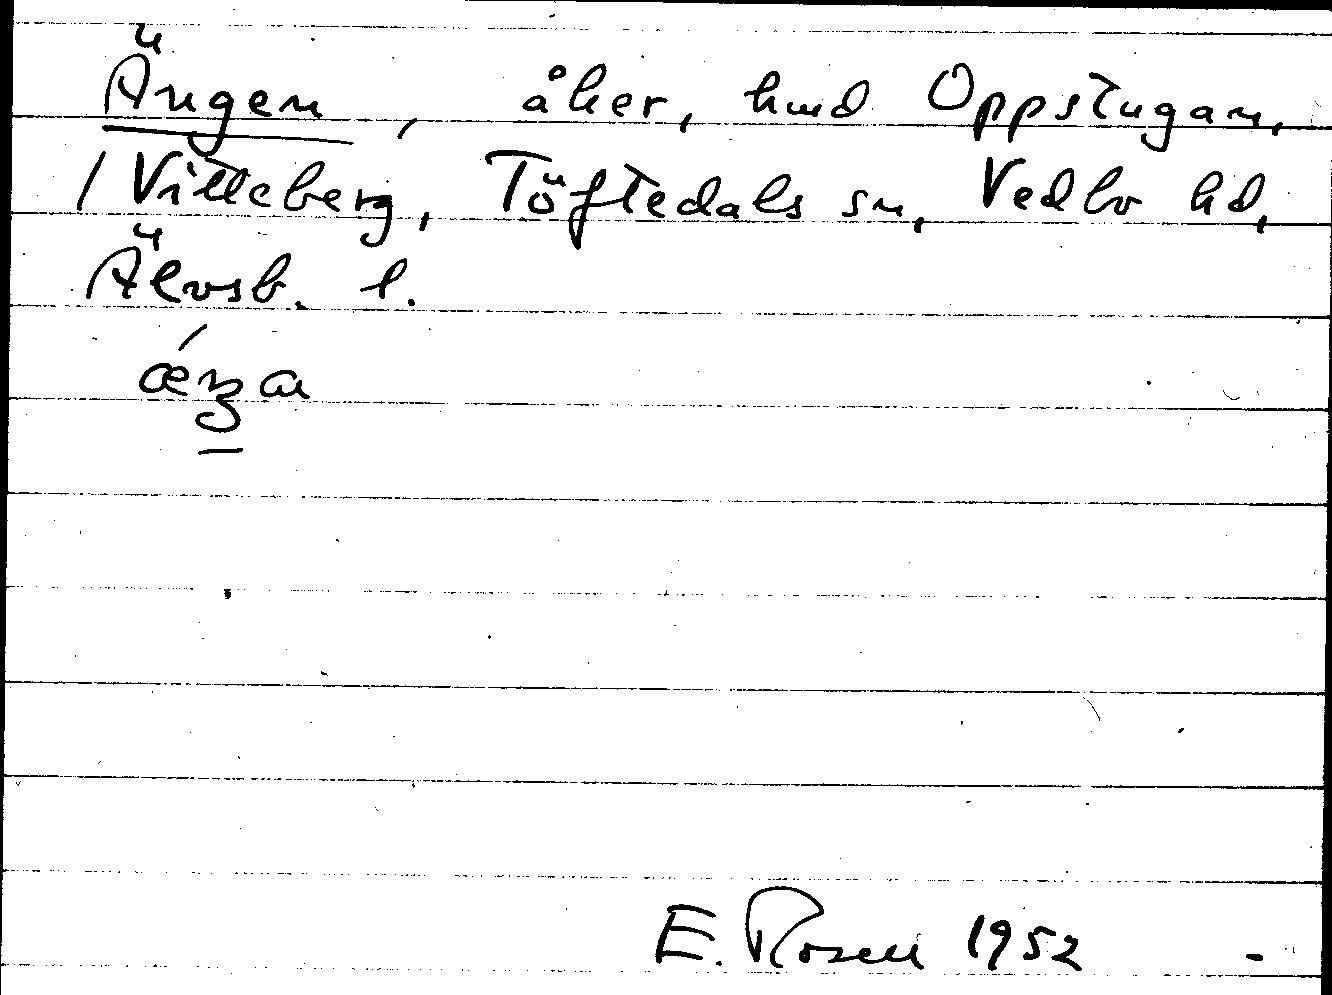 Ängen, åker, hmd Oppstugan,
/ Vitteberg, Töftedals sn, Vedbo hd,
Älvsb. l.
E. Rosen 1952